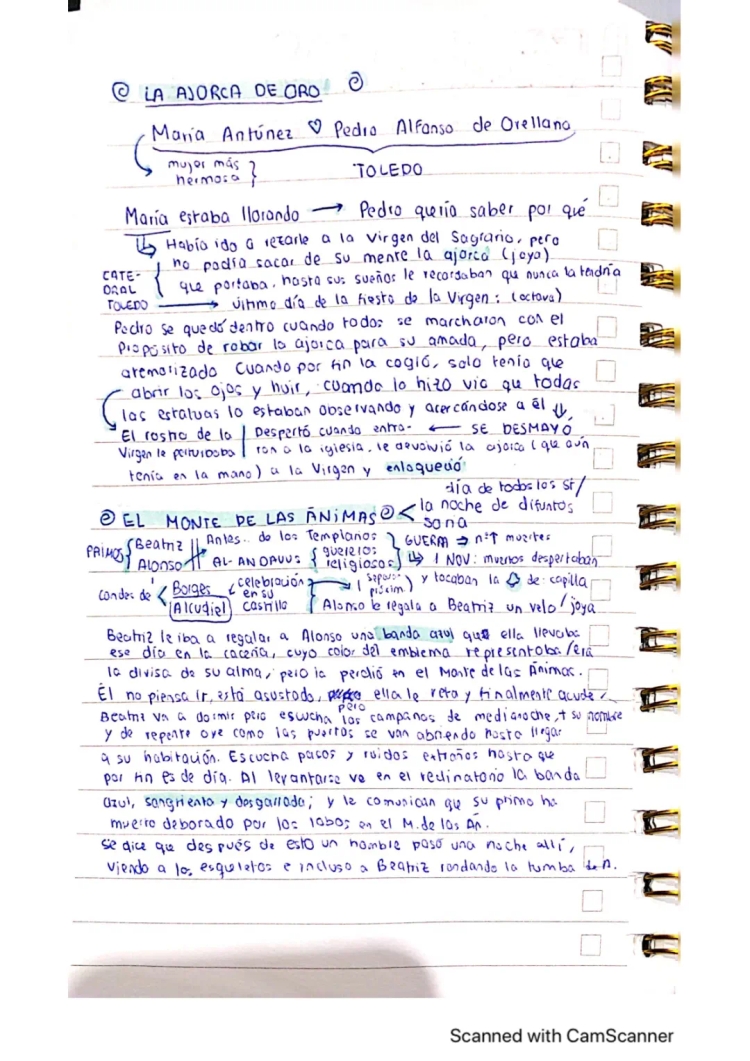 LA AJORCA DE ORO
María Antúnez ♡ Pedro Alfonso de Orellana
mujer más hermosa } TOLEDO
María estaba llorando → Pedro quería saber por qué
↳ Había ido a rezarle a la Virgen del Sagrario, pero
no podía sacar de su mente la ajorca (joya)
CATE-DRAL TOLEDO { que portaba, hasta sus sueños le recordaban que nunca la tendría
→ último día de la fiesta de la Virgen: (octava)
Pedro se quedó dentro cuando todos se marcharon con el
propósito de robar la ajorca para su amada, pero estaba
atemorizado Cuando por fin la cogió, solo tenía que
abrir los ojos y huir, cuando lo hizo vio que todas
las estatuas lo estaban observando y acercándose a él ⇓
El rostro de la Virgen le perturbaba
Despertó cuando entra- ← SE DESMAYÓ
ron a la iglesia, le devolvió la ajorca (que aún
tenía en la mano) a la Virgen y enloqueció
EL MONTE DE LAS ÁNIMAS < día de todos los St/
la noche de difuntos
Soria
PRIMOS { Beatriz Alonso
Antes.. de los Templarios
AL-ANDALUS { guerreros religiosos
GUERRA ⇒ nº↑ muertes
↳ 1 NOV: muertos despertaban
y tocaban la de capilla
Condes de < Borges Alcudiel
celebración en su castillo
Alonso le regala a Beatriz un velo/joya
Beatriz le iba a regalar a Alonso una banda azul que ella llevaba
ese día en la cacería, cuyo color del emblema representaba/era
la divisa de su alma, pero la perdió en el Monte de las Ánimas.
Él no piensa ir, está asustado, pero ella le reta y finalmente acude.
Beatriz va a dormir pero escucha las campanas de medianoche, + su nombre
y de repente oye como las puertas se van abriendo hasta llegar
a su habitación. Escucha pasos y ruidos extraños hasta que
por fin es de día. Al levantarse ve en el reclinatorio la banda
azul, sangrienta y desgarrada; y le comunican que su primo ha
muerto deborado por los lobos en el M. de las Án.
Se dice que después de esto un hombre pasó una noche allí,
viendo a los esqueletos e incluso a Beatriz rondando la tumba de A.
Scanned with CamScanner